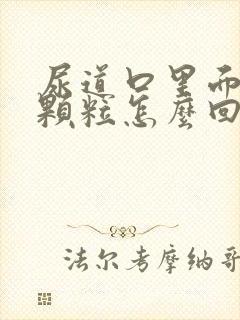 尿道口里面
顆粒怎麼回
法尔考摩纳哥